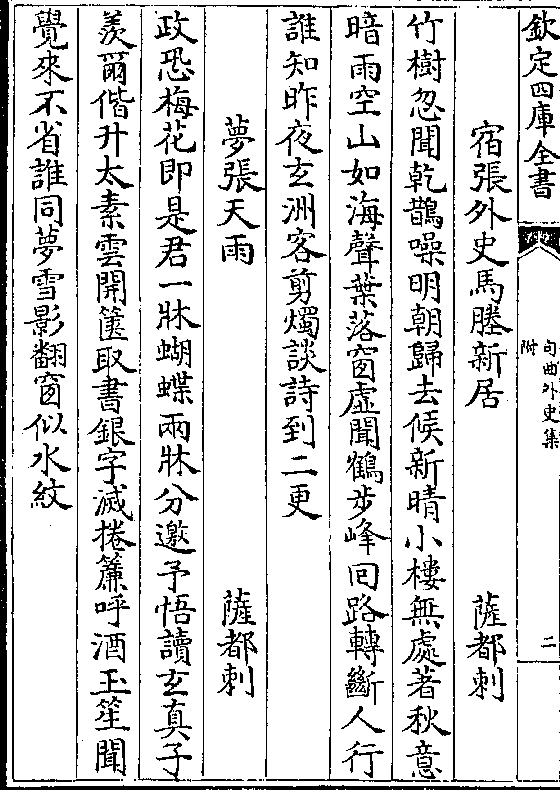 欽定四庫全書
句曲外史集
附
二
宿張外史馬塍新居
薩都刺
竹樹忽聞乾鵲噪明朝歸去候新晴小樓無處著秋意
暗雨空山如海聲葉落窗虛聞鶴步峰回路轉斷人行
誰知昨夜玄洲客剪燭談詩到二更
夢張天雨
薩都刺
政恐梅花即是君一牀蝴蝶兩牀分邀予悟讀玄真子
羨爾偕升太素雲開篋取書銀字滅捲簾呼酒玉笙聞
覺來不省誰同夢雪影翻窗似水紋